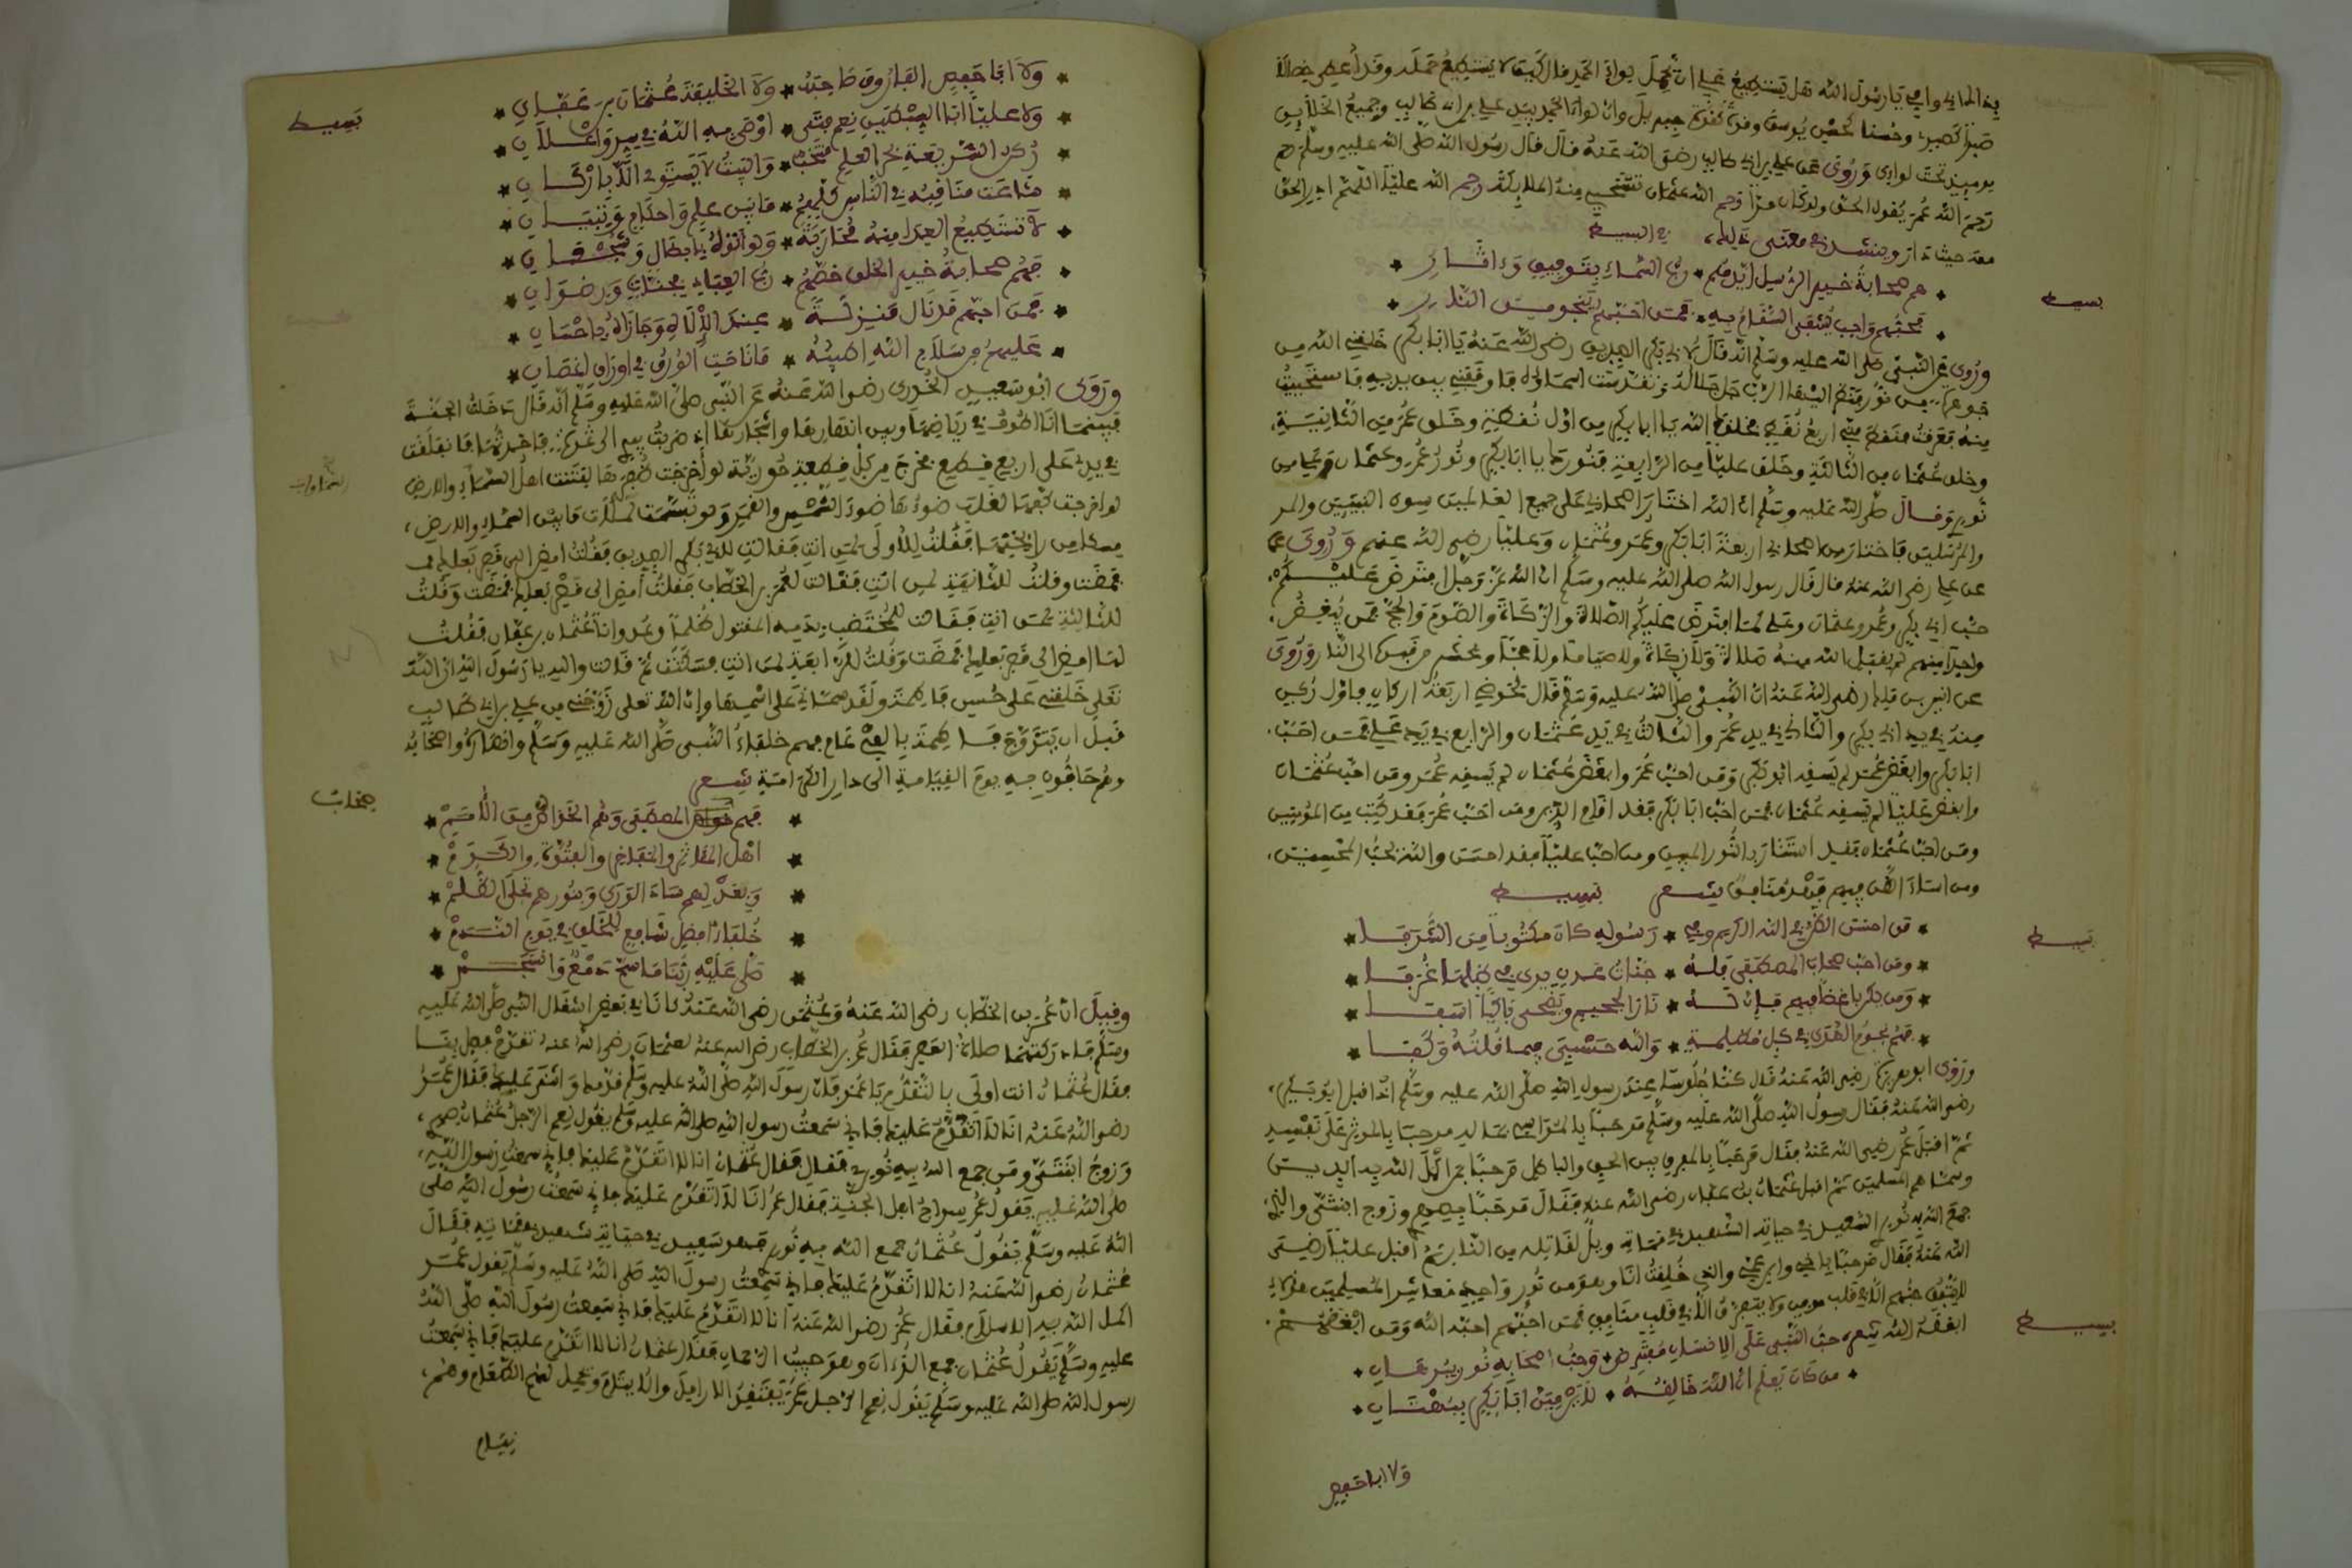 صبرا كصبري وحسنا كحسن يوسف وقوة كقوة جبريل وان لواء الحمد بيد علي بن ابي طالب وجميع الخلايق
يوميذ تحت لوايي وروي عن علي بن ابي طالب رضي الله عنه قال قال رسول الله صلى الله عليه وسلم رحم
رحم الله عمر يقول الحق ولو كان مرا رحم الله عثمان تستحيي منه الملايكة رحم الله عليا اللهم ادر الحق
معه حيث دار وينشد في معنى ذلك، في البسيط
هم صحابة خير الرسل ايدهم * رب السماء بتوفيق وايثار *
بسيط
فحبهم واجب يشفى السقام به * فمن احبهم ينجو من النار *
وروي عن النبي صلى الله عليه وسلم انه قال لابي بكر الصديق رضي الله عنه يا ابا بكر خلقني الله من
وخلق عثمان من الثالثة وخلق عليا من الرابعة فنورك يا ابا بكر ونور عمر وعثمان وعلي من
نوري وقال صلى الله عليه وسلم ان الله اختار اصحابي على جميع العالمين سوى النبيين والمر
والمرسلين فاختار من اصحابي اربعة ابا بكر وعمر وعثمان وعليا رضي الله عنهم وروي عن
عن علي رضي الله عنه قال قال رسول الله صلى الله عليه وسلم ان الله عز وجل افترض عليكم
حب ابي بكر وعمر وعثمان وعلي كما افترض عليكم الصلاة والزكاة والصوم والحج فمن يبغض
واحدا منهم لم يقبل الله منه صلاة ولا زكاة ولا صياما ولا حجا ويحشر من قبره الى النار وروي
عن انس بن مالك رضي الله عنه ان النبي صلى الله عليه وسلم قال لحوضي اربعة اركان فاول ركن
منه في يد ابي بكر والثاني في يد عمر والثالث في يد عثمان والرابع في يد علي فمن احب
ابا بكر وابغض عمر لم يسقه ابو بكر ومن احب عمر وابغض عثمان لم يسقه عمر ومن احب عثمان
وابغض عليا لم يسقه عثمان فمن احب ابا بكر فقد اقام الدين ومن احب عمر فقد كتب من المومنين
ومن احب عثمان فقد استنار بالنور المبين ومن احب عليا فقد احسن والله يحب المحسنين،
ومن اساء الظن فيهم فهو منافق شعر بسيط
* من احسن الظن في الله الكريم وفي * رسوله كان مكتوبا من الشرفا *
بسيط
* ومن احب صحاب المصطفى فله * جنات عدن يرى في ظلها غرفا *
* ومن يكن باغضا فيهم فان له * نار الجحيم ويضحى باكيا اسفا *
* فهم نجوم الهدى في كل مظلمة * والله حسبي فيما قلته وكفا *
وروى ابو هريرة رضي الله عنه قال كنا جلوسا عند رسول الله صلى الله عليه وسلم اذ اقبل ابو بكر،
رضي الله عنه فقال رسول الله صلى الله عليه وسلم مرحبا بالمواسي بماله مرحبا بالموثر على نفسه
ثم اقبل عمر رضي الله عنه فقال مرحبا بالمفرق بين الحق والباطل مرحبا بمن اكمل الله به الدين
ثم اقبل عثمان بن عفان رضي الله عنه فقال مرحبا بصهري وزوج ابنتي والذي
جمع الله به نوري السعيد في حياته الشهيد في مماته ويل لقاتله من النار ثم اقبل علي رضي
الله عنه فقال مرحبا باخي وابن عمي والذي خلقت انا وهو من نور واحد معاشر المسلمين هولاء
ابغضه الله شعر حب النبي على الانسان مفترض * وحب اصحابه نور ببرهان *
بسيط
* من كان يعلم ان الله خالقه * لا يرمين ابا بكر ببهتان *
ولا ابا حفص
* ولا ابا حفص الفاروق صاحبه * ولا الخليفة عثمان بن عفان *
* ولا عليا ابا السبطين نعم فتى * اوصى به الله في سر واعلان *
بسيط
* لا تستطيع العدا منه محاربة * ولو اتوه بابطال وشجعان *
* فهم صحابة خير الخلق خصهم * رب العباد بجنات ورضوان *
* فمن احبهم قد نال منزلة * عند الاله وجازاه باحسان *
* عليهم من سلام الله اطيبه * ما ناحت الورق في اوراق اغصان *
وروى ابو سعيد الخدري رضي الله عنه عن النبي صلى الله عليه وسلم انه قال دخلت الجنة
فبينما انا اطوف في رياضها وبين انهارها واشجارها اذ ضربت بيدي الى ثمرة فاخذتها فانفلقت
في يدي على اربع قطع فخرج من كل قطعة حورية لو اخرجت ظفرها لفتنت اهل السماء والارض
السماوات
ولو اخرجت كفها لغلب ضوءها ضوء الشمس والقمر ولو تبسمت لملات ما بين السماء والارض،
مسكا من رايحتها فقلت للاولى لمن انت فقالت لابي بكر الصديق فقلت امض الى قصر بعلك
فمضت وقلت للثانية لمن انت فقالت لعمر بن الخطاب فقلت امض الى قصر بعلك فمضت وقلت
للثالثة لمن انت فقالت للمختضب بدمه المقتول ظلما وعدوانا عثمان بن عفان فقلت
لها امض الى قصر بعلك فمضت وقلت للرابعة لمن انت فسكتت ثم قالت والله يا رسول الله ان الله
تعالى خلقني على حسن فاطمة ولقد سماني على اسمها وان الله تعالى زوجني من علي بن ابي طالب
قبل ان يتزوج فاطمة بالفي عام فهم خلفاء النبي صلى الله عليه وسلم وانصاره واصحابه
وهم حافون به يوم القيامة الى دار الكرامة شعر
* اهل المفاخر والتفاخر والفتوة والكرم *
* وبعدلهم ساد الورى وبنورهم تجلى الظلم *
* صلى عليه ربنا ما سح دمع وانسجم *
وقيل ان عمر بن الخطاب رضي الله عنه وعثمان رضي الله عنه كانا في بعض اشغال النبي صلى الله عليه
وسلم فادركتهما صلاة العصر فقال عمر بن الخطاب رضي الله عنه لعثمان رضي الله عنه تقدم فصل بنا
فقال عثمان انت اولى بالتقدم يا عمر فان رسول الله صلى الله عليه وسلم قدمك واثنى عليك فقال عمر
رضي الله عنه انا لا اتقدم عليك فاني سمعت رسول الله صلى الله عليه وسلم يقول نعم الرجل عثمان صهري،
وزوج ابنتي ومن جمع الله به نوري فقال عثمان انا لا اتقدم عليك فاني سمعت رسول الله،
صلى الله عليه يقول عمر سراج اهل الجنة فقال عمر انا لا اتقدم عليك فاني سمعت رسول الله صلى
الله عليه وسلم يقول عثمان جمع الله به نوري فهو سعيد في حياته شهيد في مماته فقال
عثمان رضي الله عنه انا لا اتقدم عليك فاني سمعت رسول الله صلى الله عليه وسلم يقول عمر
اكمل الله به الاسلام فقال عمر رضي الله عنه انا لا اتقدم عليك فاني سمعت رسول الله صلى الله
عليه وسلم يقول عثمان جمع القرءان وهو حبيب الرحمان فقال عثمان انا لا اتقدم عليك فاني سمعت
رسول الله صلى الله عليه وسلم يقول نعم الرجل عمر يتفقد الارامل والايتام ويحمل لهم الطعام وهم،
نيام